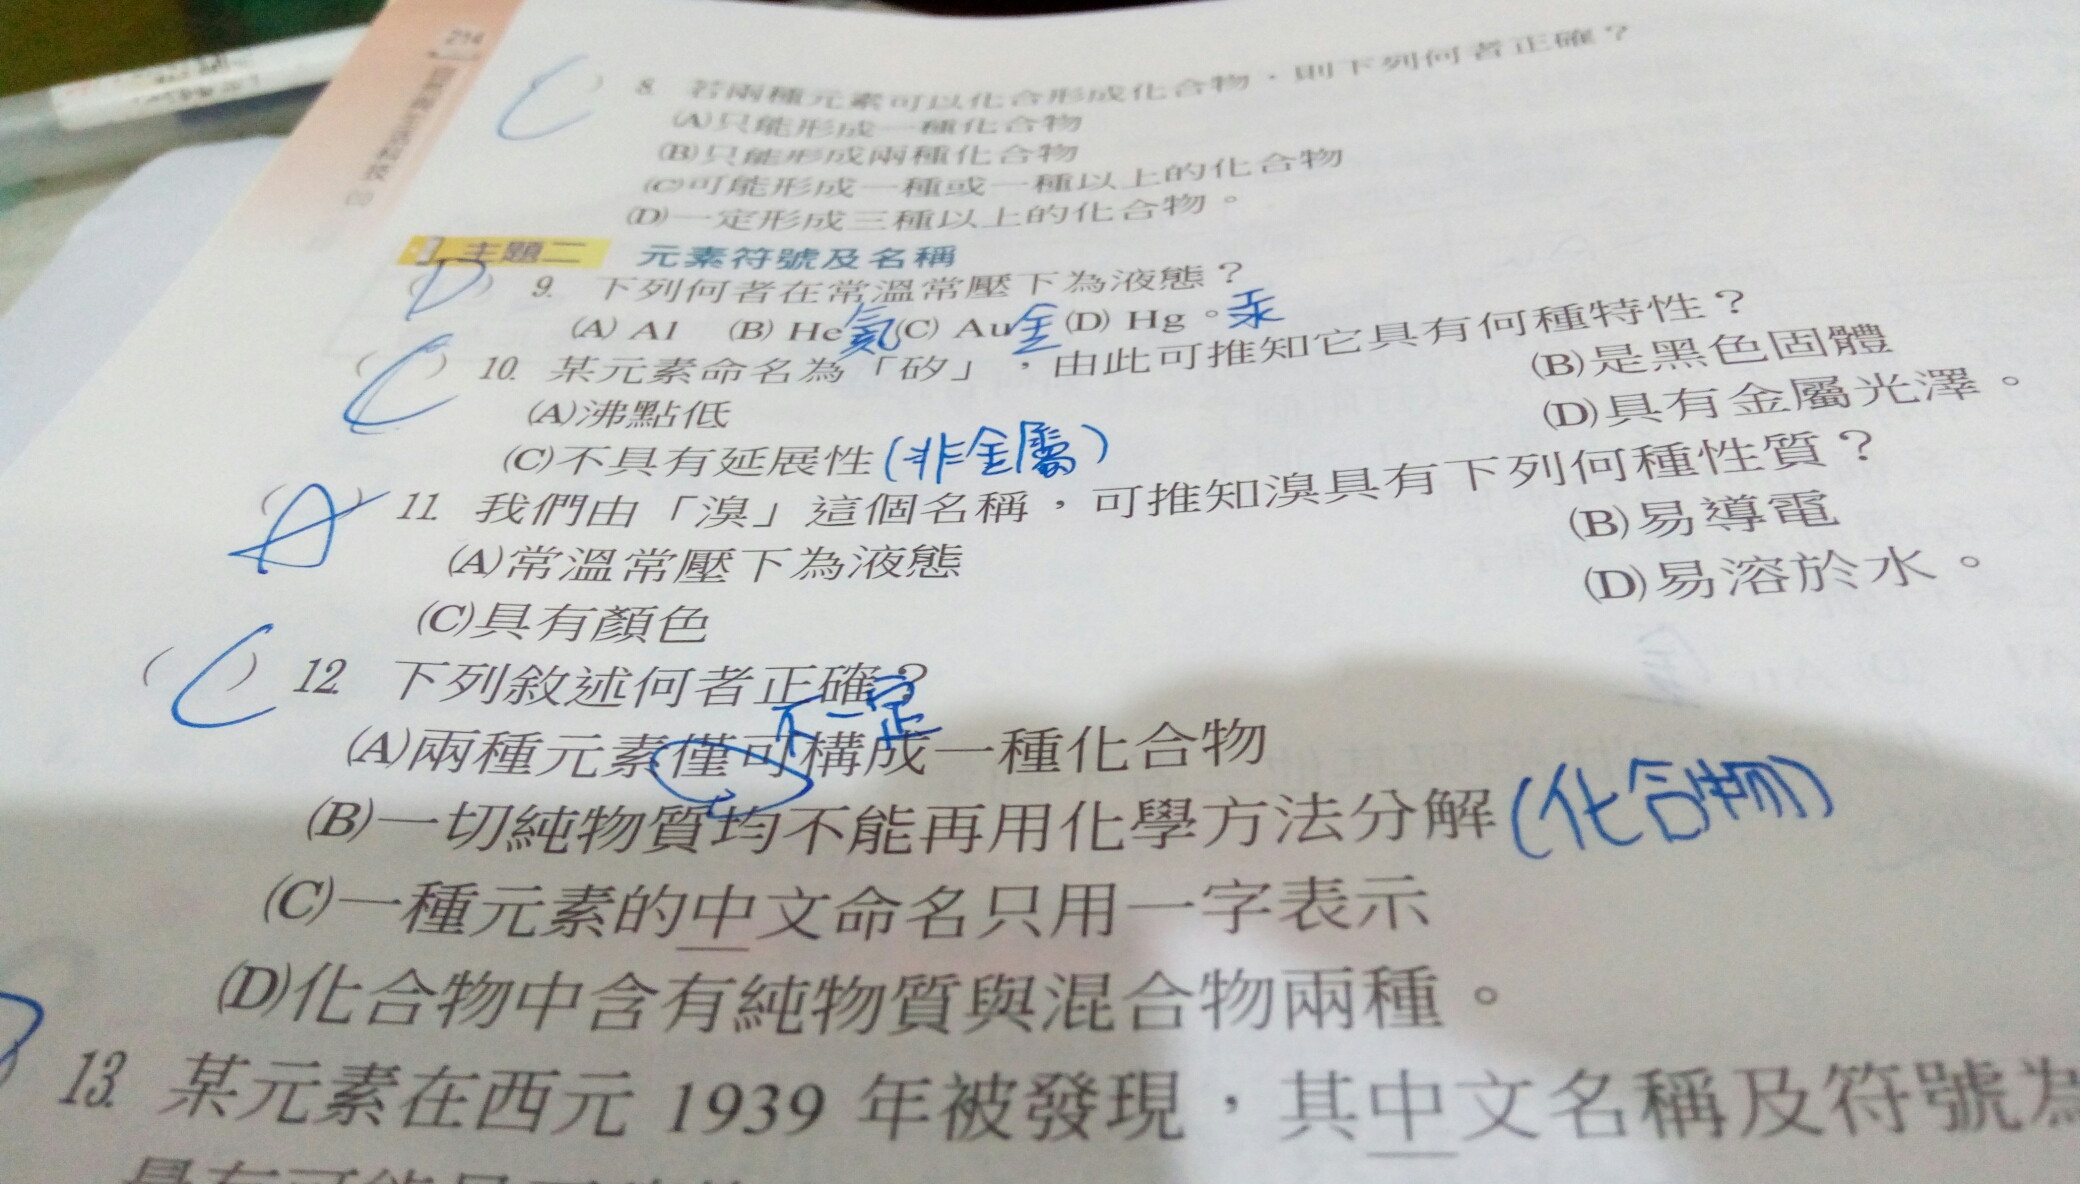 214
C
( ) 8. 若兩種元素可以化合形成化合物，則下列何者正確？
(A)只能形成一種化合物
(B)只能形成兩種化合物
(C)可能形成一種或一種以上的化合物
(D)一定形成三種以上的化合物。
主題二 元素符號及名稱
(D) 9. 下列何者在常溫常壓下為液態？
(A) Al (B) He氦(C) Au金(D) Hg。汞
(C) 10. 某元素命名為「矽」，由此可推知它具有何種特性？
(A)沸點低 (B)是黑色固體
(C)不具有延展性(非金屬) (D)具有金屬光澤。
(A) 11. 我們由「溴」這個名稱，可推知溴具有下列何種性質？
(A)常溫常壓下為液態 (B)易導電
(C)具有顏色 (D)易溶於水。
(C) 12. 下列敘述何者正確？
不一定
(A)兩種元素僅可構成一種化合物
(B)一切純物質均不能再用化學方法分解(化合物)
(C)一種元素的中文命名只用一字表示
(D)化合物中含有純物質與混合物兩種。
13. 某元素在西元 1939 年被發現，其中文名稱及符號為